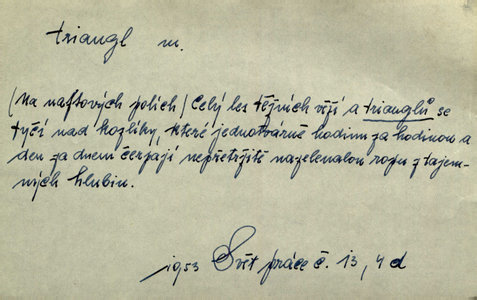 triangl m.
(Na naftových polích) Celý les těžních věží a trianglů se
tyčí nad kozlíky, které jednotvárně hodinu za hodinou a
den za dnem čerpají nepřetržitě nazelenalou ropu z tajem-
ných hlubin.
1953 Svět práce č. 13, 4 d